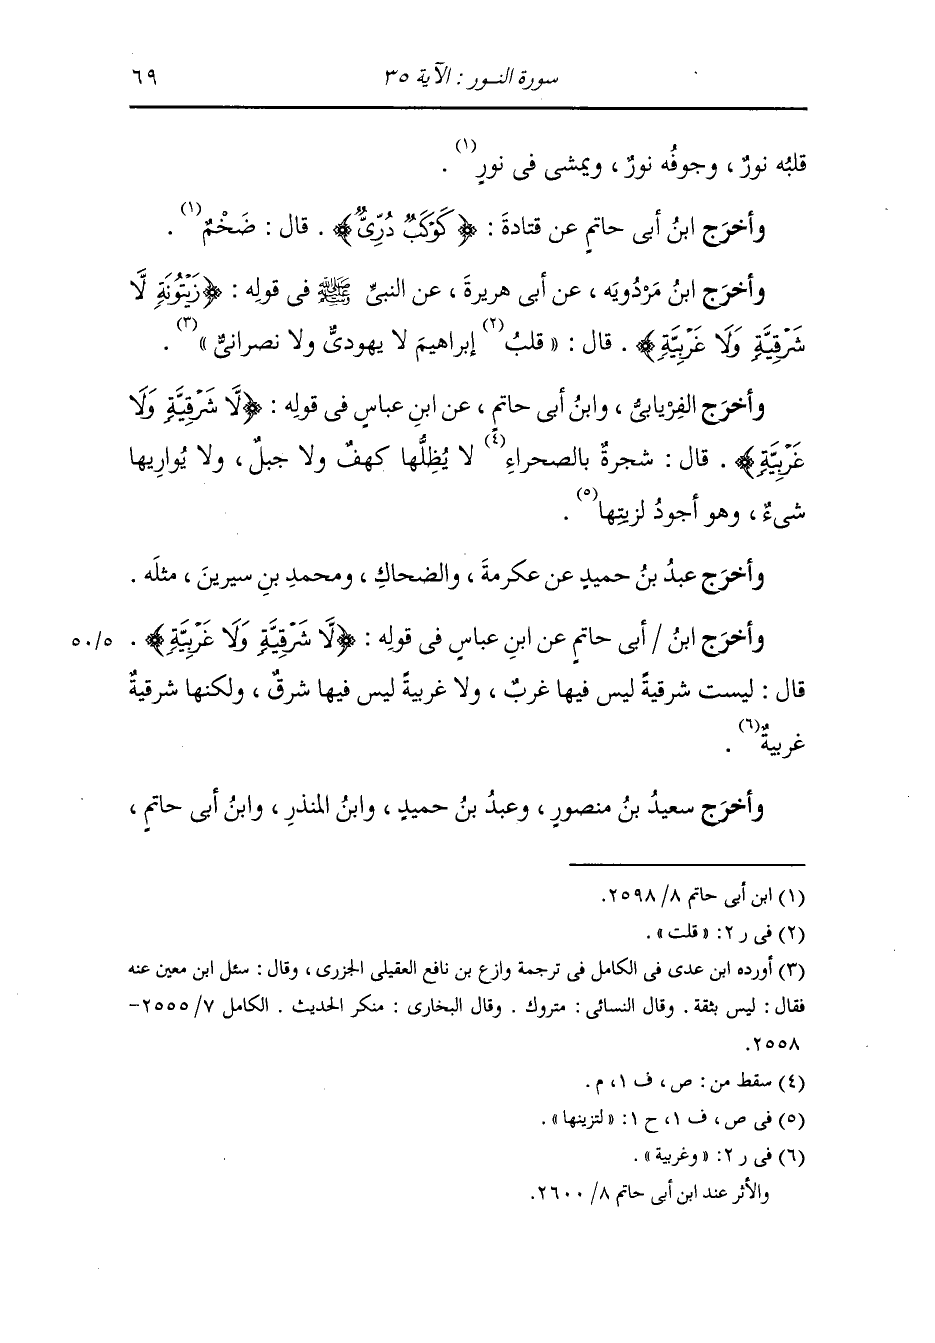 سورة النور : الآية ٣٥ ٦٩
قلبُه نورٌ ، وجوفُه نورٌ ، ويمشى فى نورٍ(١) .
وأخرَج ابنُ أبى حاتمٍ عن قتادةَ : ﴿كَوْكَبٌ دُرِّىٌّ﴾ . قال : ضَخْمٌ(١) .
وأخرَج ابنُ مَرْدُويَه ، عن أبى هريرةَ ، عن النبىِّ ﷺ فى قولِه : ﴿زَيْتُونَةٍ لَّا
شَرْقِيَّةٍ وَلَا غَرْبِيَّةٍ﴾ . قال : « قلبُ(٢) إبراهيمَ لا يهودىٌّ ولا نصرانىٌّ »(٣) .
وأخرَج الفِرْيابىُّ ، وابنُ أبى حاتمٍ ، عن ابنِ عباسٍ فى قولِه : ﴿لَّا شَرْقِيَّةٍ وَلَا
غَرْبِيَّةٍ﴾ . قال : شجرةٌ بالصحراءِ(٤) لا يُظِلُّها كهفٌ ولا جبلٌ ، ولا يُوارِيها
شىءٌ ، وهو أجودُ لزيتِها(٥) .
وأخرَج عبدُ بنُ حميدٍ عن عكرمةَ ، والضحاكِ ، ومحمدِ بنِ سيرينَ ، مثلَه .
وأخرَج ابنُ / أبى حاتمٍ عن ابنِ عباسٍ فى قولِه : ﴿لَّا شَرْقِيَّةٍ وَلَا غَرْبِيَّةٍ﴾ . ٥٠/٥
قال : ليست شرقيةً ليس فيها غربٌ ، ولا غربيةً ليس فيها شرقٌ ، ولكنها شرقيةٌ
غربيةٌ(٦) .
وأخرَج سعيدُ بنُ منصورٍ ، وعبدُ بنُ حميدٍ ، وابنُ المنذرِ ، وابنُ أبى حاتمٍ ،
(١) ابن أبى حاتم ٨/ ٢٥٩٨.
(٢) فى ر ٢: « قلت » .
(٣) أورده ابن عدى فى الكامل فى ترجمة وازع بن نافع العقيلى الجزرى ، وقال : سئل ابن معين عنه
فقال : ليس بثقة . وقال النسائى : متروك . وقال البخارى : منكر الحديث . الكامل ٧/ ٢٥٥٥-
٢٥٥٨.
(٤) سقط من : ص ، ف ١، م .
(٥) فى ص ، ف ١، ح ١: « لتزينها » .
(٦) فى ر ٢: « وغربية » .
والأثر عند ابن أبى حاتم ٨/ ٢٦٠٠.